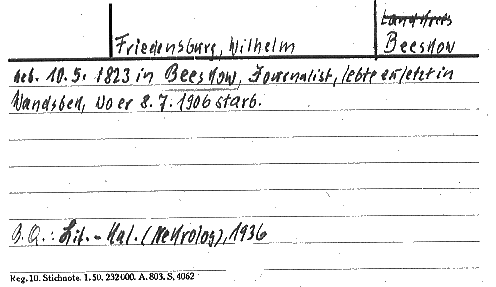 Landkreis
Friedensburg, Wilhelm
Beeskow
geb. 10.5.1823 in Beeskow, Journalist, lebte er jetzt in
Wandsbek, wo er 8.7.1906 starb.
B.Q.: Lit.-Kal. (Nekrolog), 1936
Reg. 10. Stichnote. 1. 50. 232000. A. 803. S. 4062